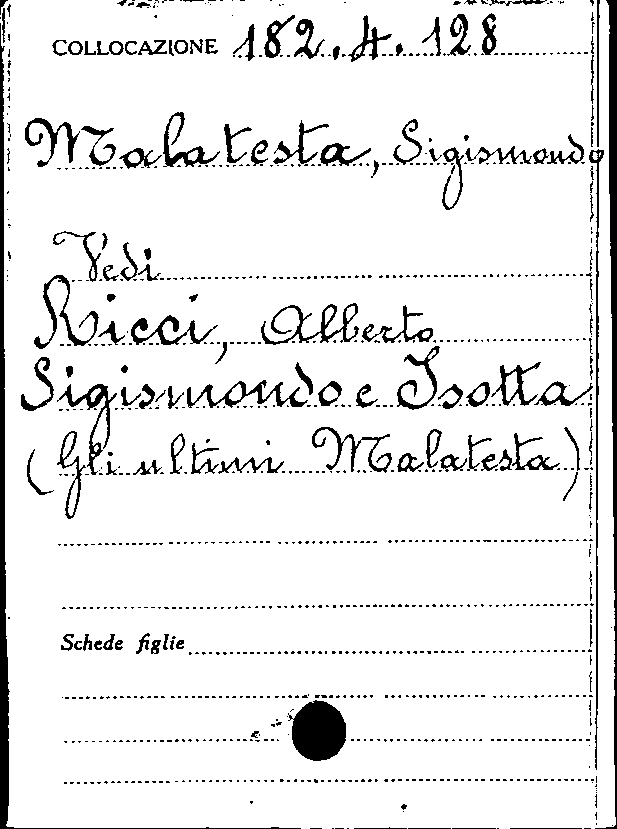 COLLOCAZIONE 182.4.128
Malatesta, Sigismondo
Vedi
Ricci, Alberto
Sigismondo e Isotta
(Gli ultimi Malatesta)
Schede figlie